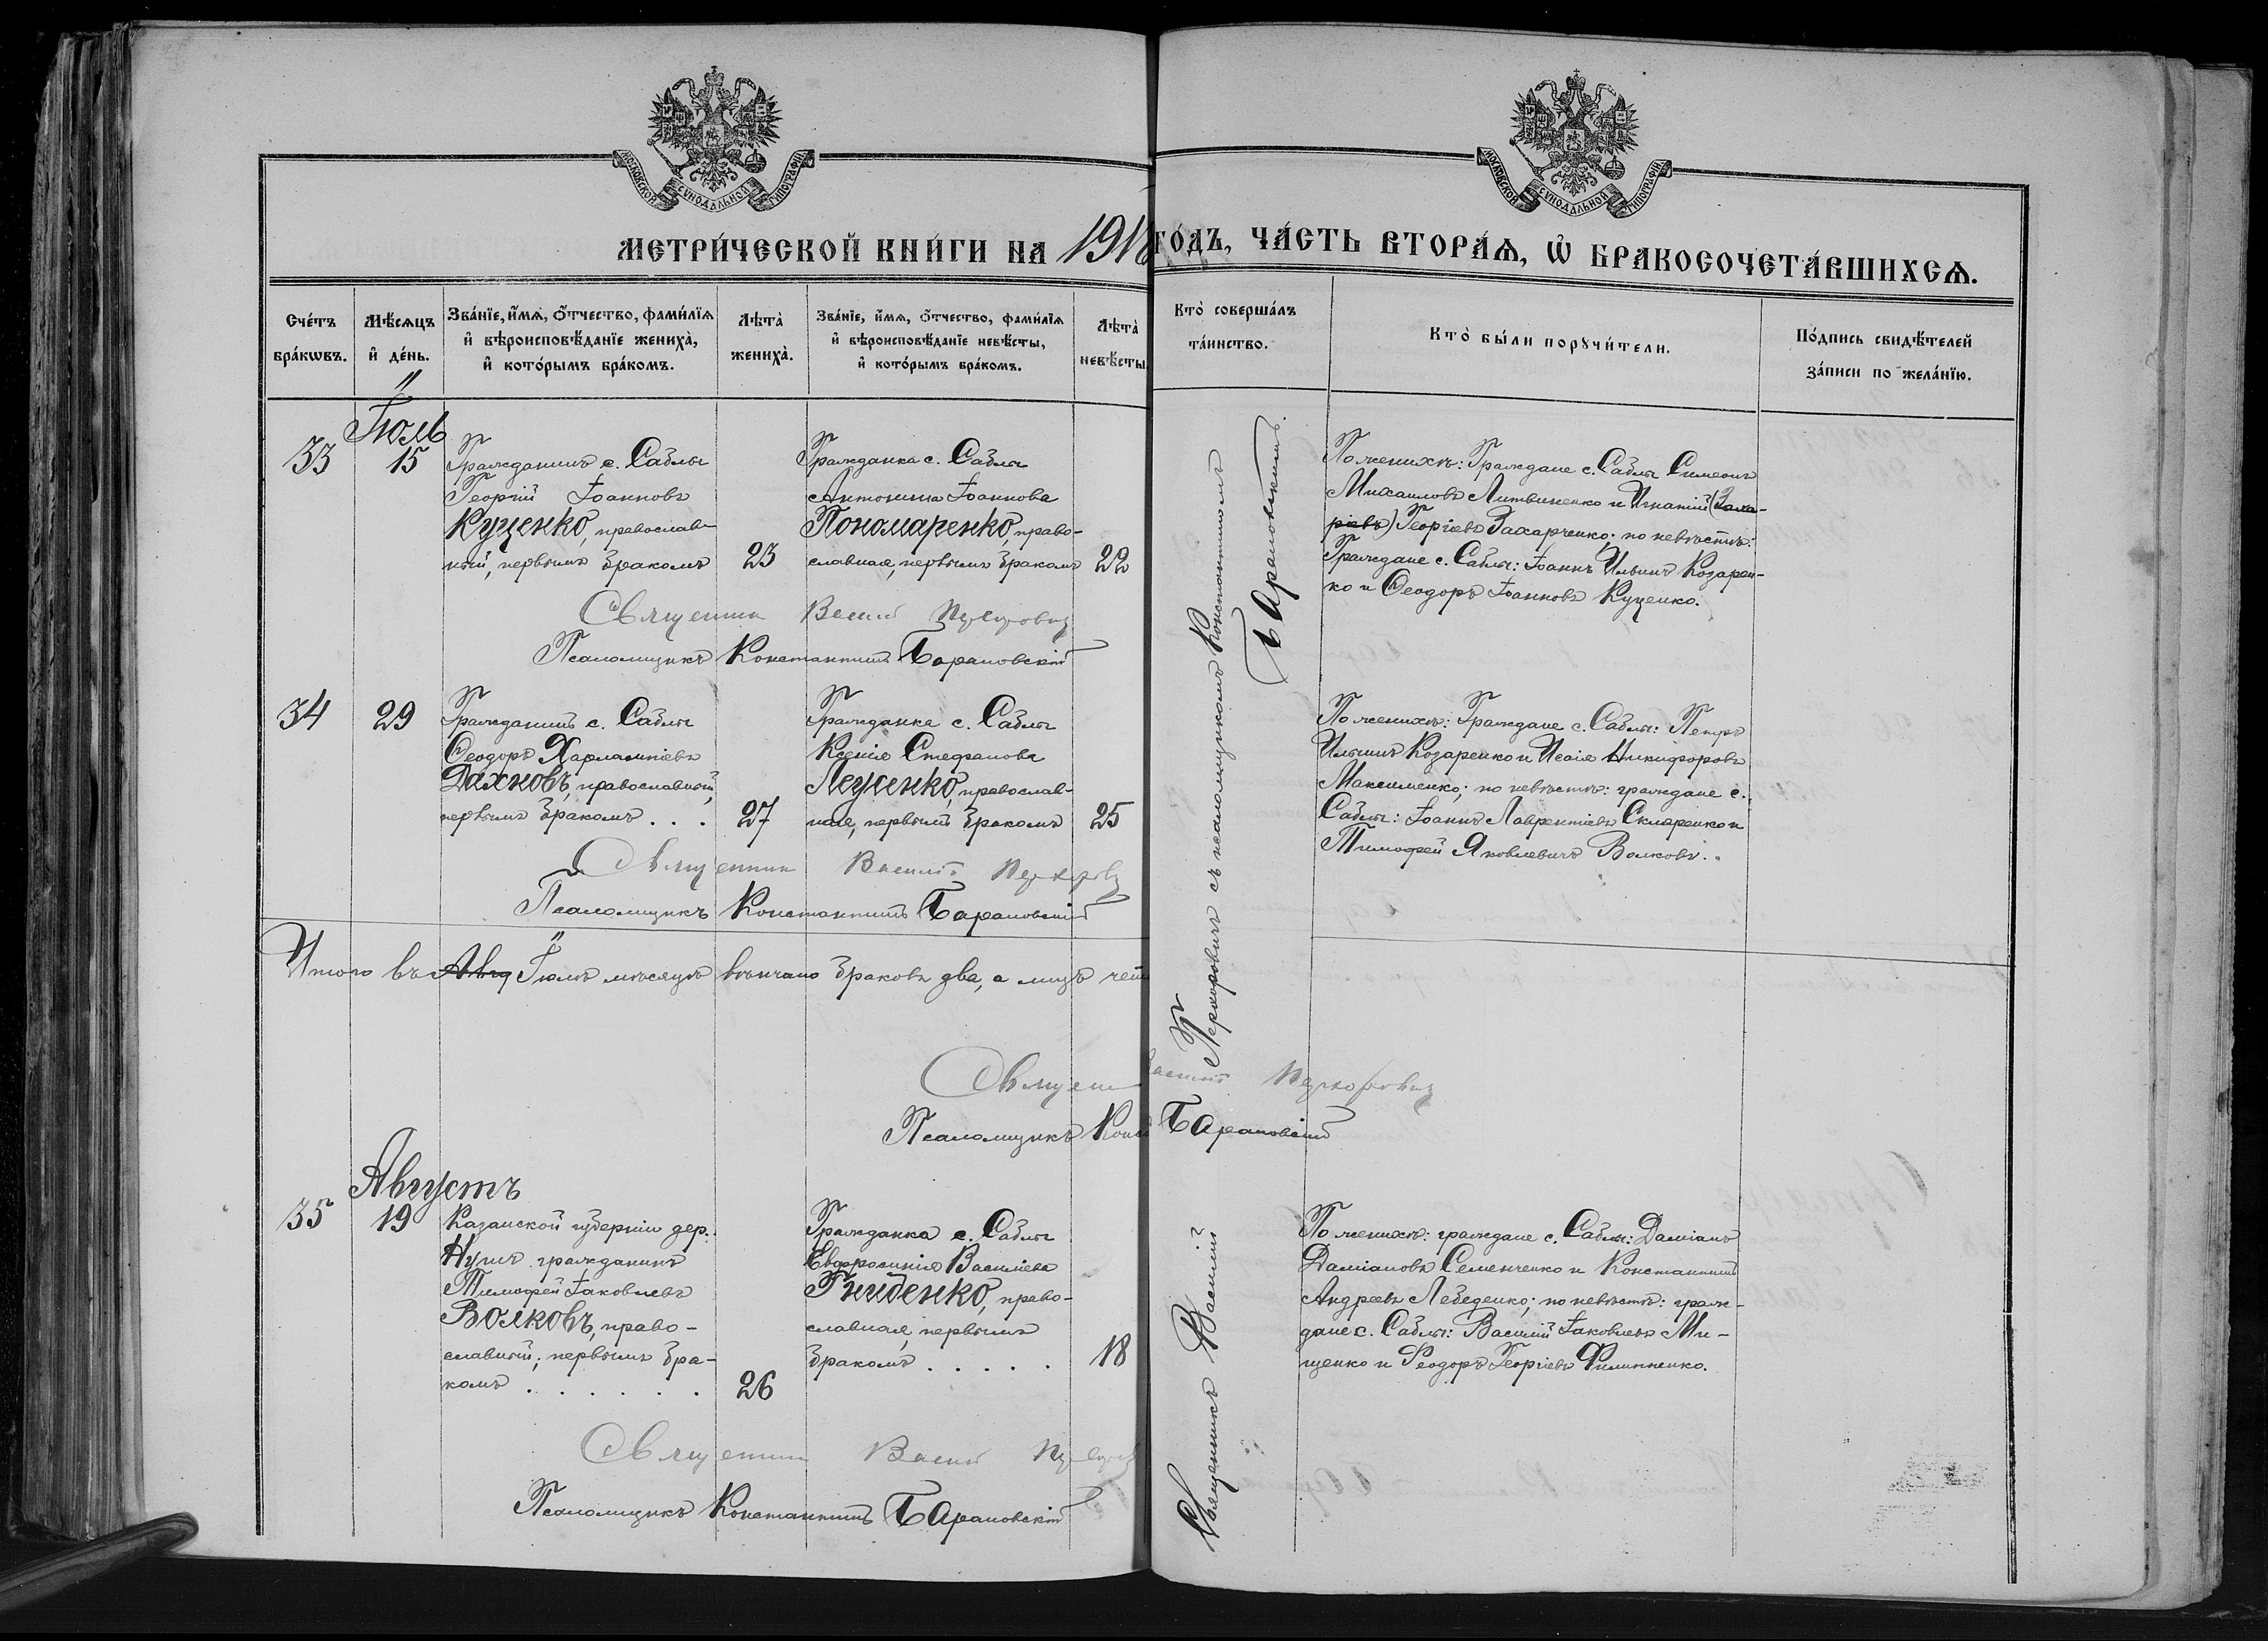 МОСКОВСКОЙ СУНОДАЛЬНОЙ ТИПОГРАФІИ
МОСКОВСКОЙ СУНОДАЛЬНОЙ ТИПОГРАФІИ
МЕТРИ́ЧЕСКОЙ КНИ́ГИ НА 1918 ГО́ДЪ, ЧА́СТЬ ВТОРА́Ѧ, Ѡ҆ БРАКОСОЧЕТА́ВШИХСѦ.
Сче́тъ
бра́кѡвъ.
Мѣ́сѧцъ
и҆ де́нь.
Зва́нїе, и҆́мѧ, ѻ҆́тчество, фами́лїѧ
и҆ вѣроисповѣ́данїе жениха̀,
и҆ кото́рымъ бра́комъ.
Лѣта̀
жениха̀.
Зва́нїе, и҆́мѧ, ѻ҆́тчество, фами́лїѧ
и҆ вѣроисповѣ́данїе невѣ́сты,
и҆ кото́рымъ бра́комъ.
Лѣта̀
невѣ́сты.
Кто̀ соверша́лъ
та́инство.
Кто̀ бы́ли порꙋчи́тели.
По́дпись свидѣ́телей
за́писи по жела́нїю.
Іюль
33
15
Гражданинъ с. Саблы
Георгій Іоанновъ
Куценко, православ-
ный, первымъ бракомъ
23
Гражданка с. Саблы
Антонина Іоаннова
Пономаренко, право-
славная, первымъ бракомъ
22
По женихѣ: Граждане с. Саблы Симеонъ
Михаиловъ Литвиненко и Игнатій (Заха-
ріевъ) Георгіевъ Захарченко; по невѣстѣ:
Граждане с. Саблы: Іоаннъ Ильинъ Козарен-
ко и Ѳеодоръ Іоанновъ Куценко.
Священник Васил
Псаломщикъ Константинъ Барановскій
34
29
Гражданинъ с. Саблы
Ѳеодоръ Харлампіевъ
Дахновъ, православный,
первымъ бракомъ . . .
27
Гражданка с. Саблы
Ксенія Стефанова
Леусенко, православ-
ная, первымъ бракомъ
25
По женихѣ: Граждане с. Саблы: Петръ
Ильинъ Козаренко и Исаія Никифоровъ
Максименко; по невѣстѣ: граждане с.
Саблы: Іоаннъ Лаврентіевъ Скляренко и
Тимофей Яковлевичъ Волковъ.
Священник Василій
Псаломщикъ Константинъ Барановскій
Итого въ Авг Іюлѣ мѣсяцѣ вѣнчано браковъ два, а лицъ чет
Священ Василій
Псаломщикъ Конс Барановскій
Августъ
35
19
Казанской губерніи дер.
гражданинъ
Тимофей Іаковлевъ
Волковъ, право-
славный; первымъ бра-
комъ . . . . . .
26
Гражданка с. Саблы
Евфросинія Васильева
Гниденко, право-
славная, первымъ
бракомъ . . . . .
18
По женихѣ: граждане с. Саблы: Даміанъ
Даміановъ Семенченко и Константинъ
Андреевъ Лебеденко; по невѣстѣ: граж-
дане с. Саблы: Василій Іаковлевъ Ми-
щенко и Ѳеодоръ Георгіевъ Филипенко.
Священник Васил
Псаломщикъ Константинъ Барановскій
Священникъ Василій Перхоровичъ съ псаломщикомъ Константиномъ
Барановскимъ.